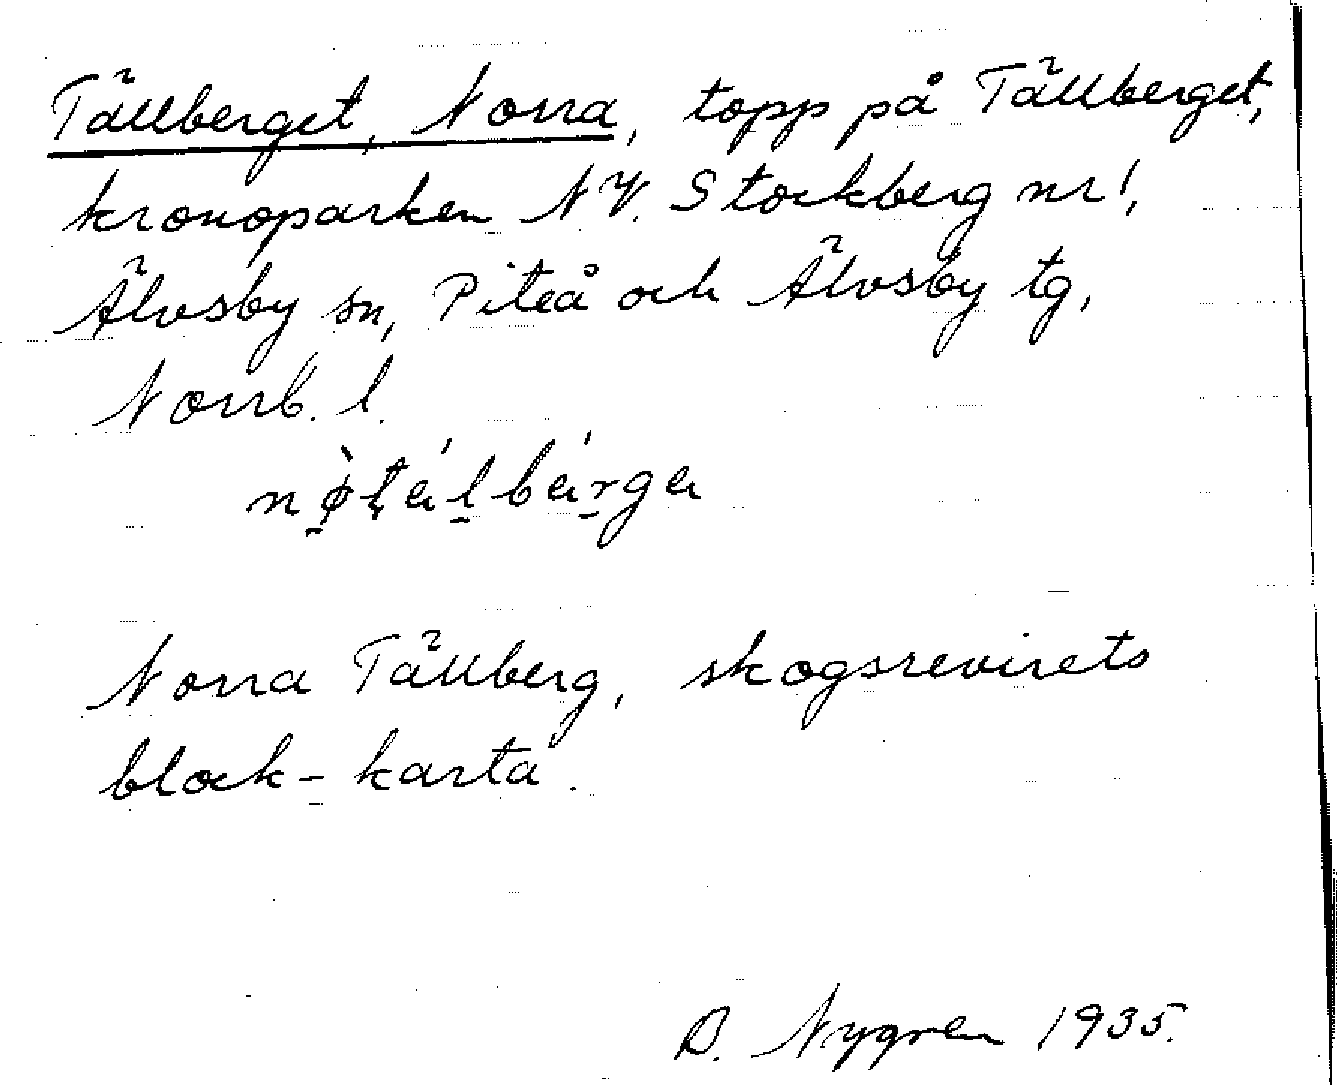 Tällberget, Norra, topp på Tällberget,
kronoparken N V. Stockberg nr 1,
Älvsby sn, Piteå och Älvsby tg,
Norrb. l.
Norra Tällberg, skogsrevirets
block-karta.
B. Nygren 1935.